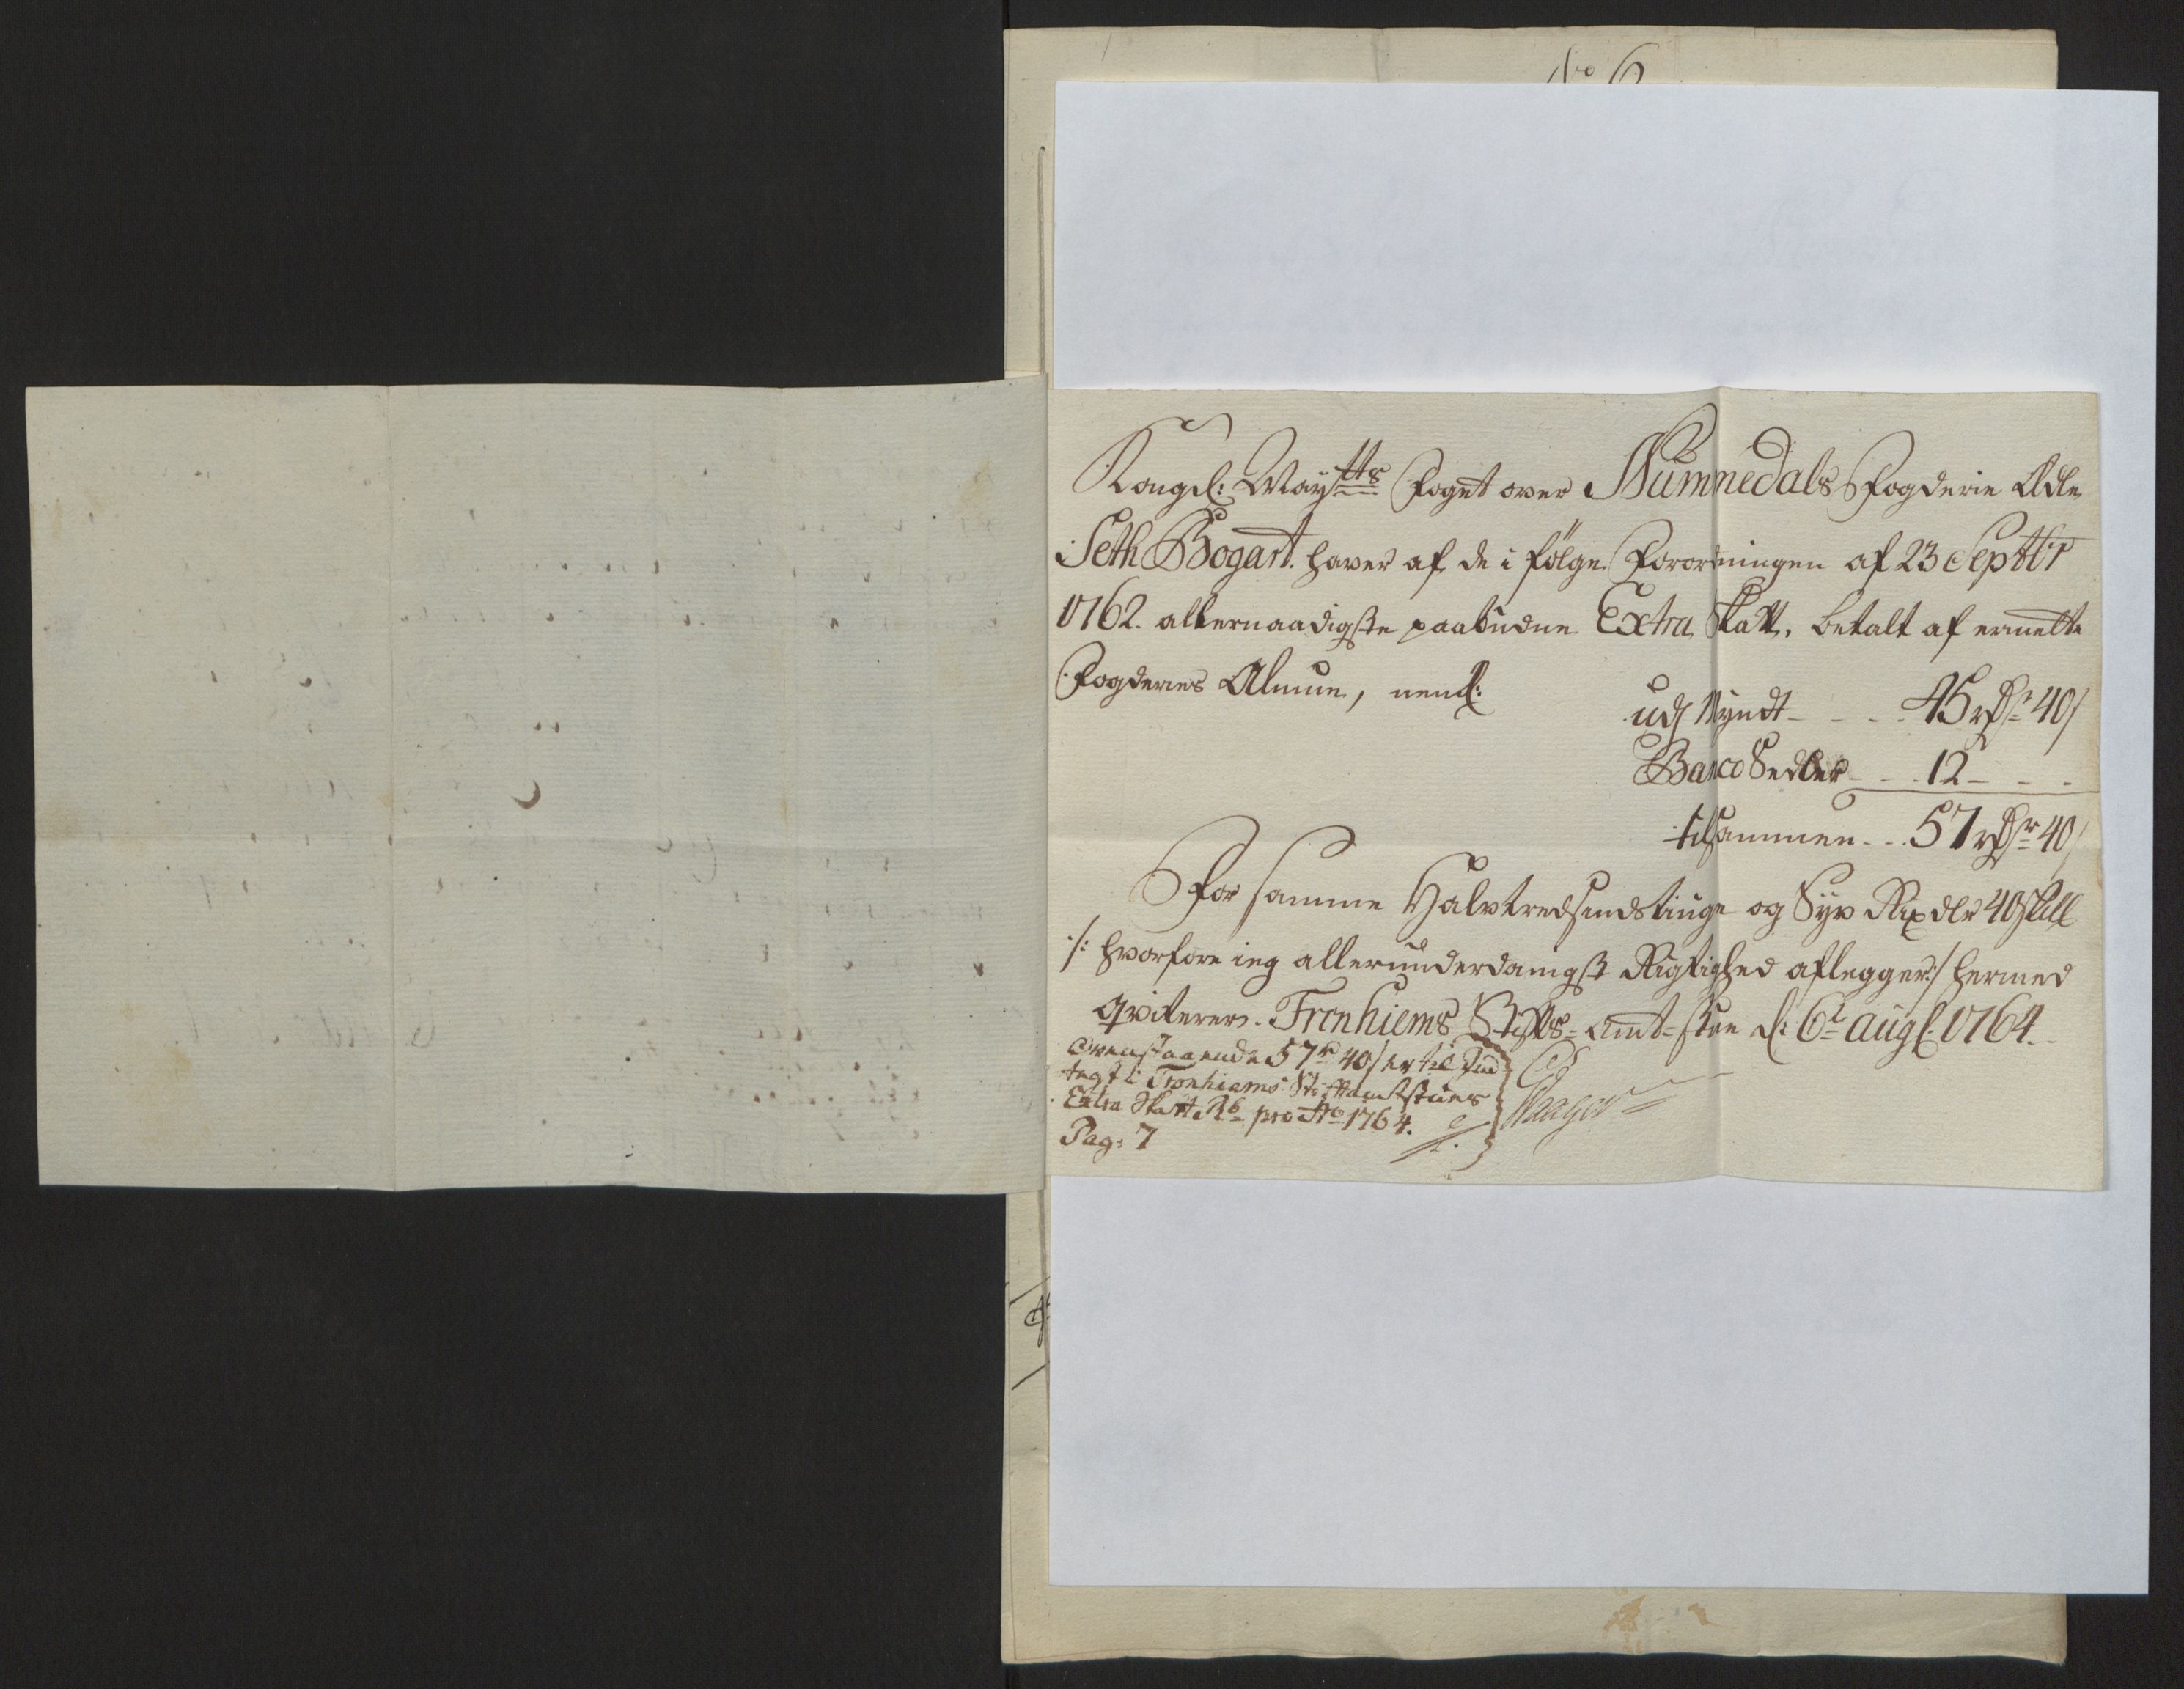 No 6
Kongel: Maÿtts Foget over Nummedals Fogderie Adle
Seth Bogart. haver af de i følge Forordningen af 23 Septbr
1762. allernaadigste paabudne Extra Skatt, betalt af ermelte
Fogderies Almue, neml:
udj Myndt - - - 45 rdr 40 s
Banco Sedler - - - 12 - - -
tilsammen - - 57 rdr 40 s
For samme Halvtredsindstiuge og Syv Rixdlr 40 skill
/: hvorfore ieg allerunderdanigst Rigtighed aflegger :/ hermed
qviterer. Tronhiems Stiffts-Amt-stue d: 6t Augl. 1764.
Ovenstaaende 57 r 40 s er til Ind
tegt i Tronhiems Stifftamtstues
Extra Skatt Rb pro Ao 1764.
Pag: 7